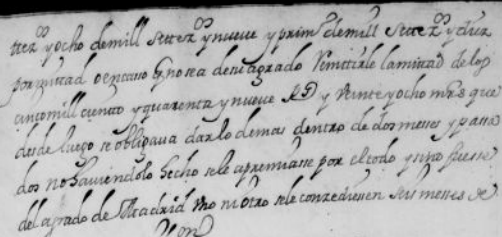 tterº y ocho de mill setterºs y nueve y primº de mill setterºs y diez
por mittad o en caso q no sea de ne agrado Remittirle la mittad de los
cinco mill ciento y quarenta y nueve RD y Veinte y ocho mrs que
desde luego se obligava dar lo demas dentro de dos messes y passa
dos no haviendolo hecho sele apremiasse por el todo y sino fuesse
del agrado de Madrid Uno ni otro sele conzediessen seis messes de